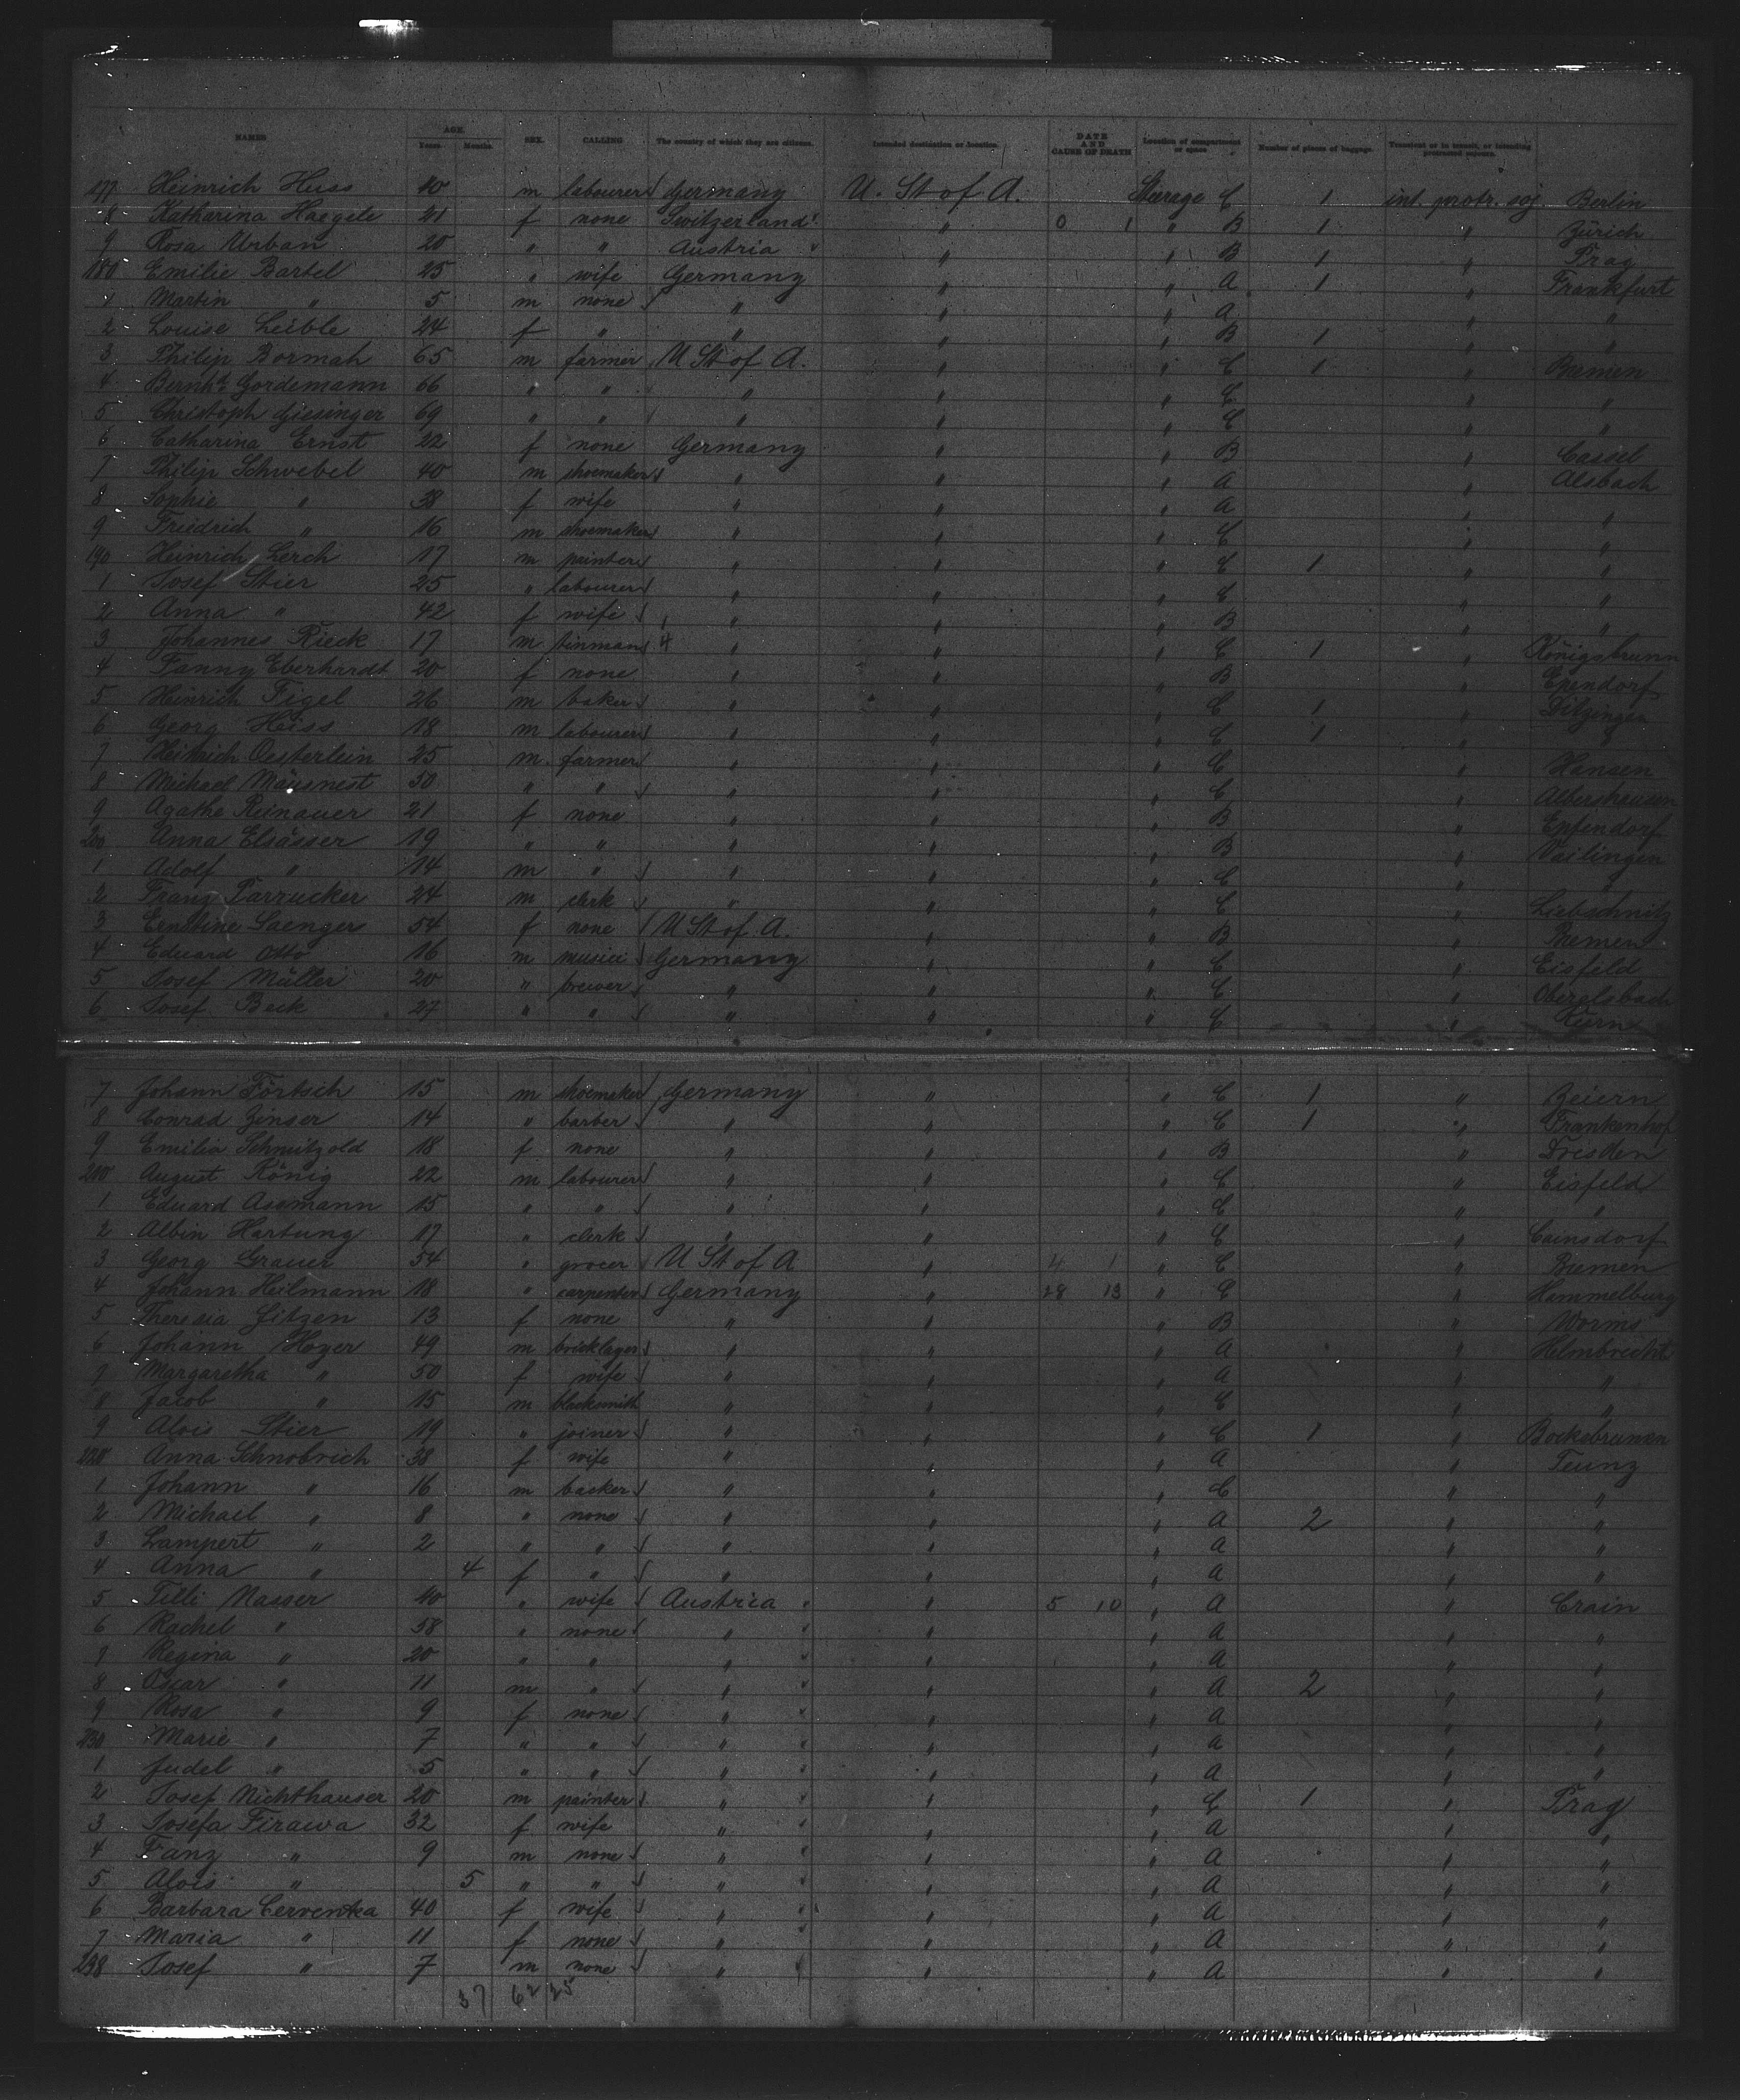 NAMES AGE. Years. Months. SEX. CALLING The country of which they are citizens. Intended destination or location. DATE AND CAUSE OF DEATH Location of compartment or space. Number of pieces of baggage. Transient or in transit, or intending protracted sojourn.
177 Heinrich Huss 40 m labourer Germany U. St of A. Steerage C 1 int. protr. soj. Berlin
8 Katharina Haegele 21 f none Switzerland " 0 1 " B 1 " Zürich
9 Rosa Urban 20 " " Austria " " B 1 " Prag
180 Emilie Bartel 25 " wife Germany " " A 1 " Frankfurt
1 Martin " 5 m none " " " A " "
2 Louise Leible 24 f " " " " B 1 " "
3 Philip Bormah 65 m farmer U St of A. " " C 1 " Bremen
4 Bernhd Gordemann 66 " " " " " C " "
5 Christoph Giesinger 69 " " " " " C " "
6 Catharina Ernst 22 f none Germany " " B " Cassel
7 Philip Schwebel 40 m shoemaker " " " A " Alsbach
8 Sophie " 38 f wife " " " A " "
9 Friedrich " 16 m shoemaker " " " C " "
190 Heinrich Lerch 17 m painter " " " C 1 " "
1 Josef Stier 25 " labourer " " " C " "
2 Anna " 42 f wife " " " B " "
3 Johannes Rieck 17 m tinman 4 " " " C 1 " Königsbrunn
4 Fanny Eberhardt 20 f none " " " B " Ependorf
5 Heinrich Figel 26 m baker " " " C 1 " Ditzingen
6 Georg Heiss 18 m labourer " " " C 1 " "
7 Heinrich Oesterlein 25 m farmer " " " C " Hansen
8 Michael Mäusnest 30 " " " " " C " Albershausen
9 Agathe Reinauer 21 f none " " " B " Epfendorf
200 Anna Elsässer 19 " " " " " B " Vailingen
1 Adolf " 14 m " " " " C " "
2 Franz Parzucker 24 m clerk " " " C " Liebschnitz
3 Ernstine Saenger 54 f none U St of A. " " B " Bremen
4 Eduard Otto 16 m musici Germany " " C " Eisfeld
5 Josef Müller 20 " brewer " " " C " Oberelsbach
6 Josef Beck 27 " " " " " C "
7 Johann Förtsch 15 m shoemaker Germany " " C 1 " Zeiern
8 Conrad Zinser 14 " barber " " " C 1 " Frankenhof
9 Emilia Schmitzold 18 f none " " " B " Dresden
210 August König 22 m labourer " " " C " Eisfeld
1 Eduard Assmann 15 " " " " " C " "
2 Albin Hartung 17 " clerk " " " C " Cainsdorf
3 Georg Grauer 54 " grocer U St of A " 4 1 " C " Bremen
4 Johann Heilmann 18 " carpenter Germany " 28 13 " C " Hammelburg
5 Theresia Jitzen 13 f none " " " B " Worms
6 Johann Hoyer 49 m bricklayer " " " A " Helmbrechts
7 Margaretha " 50 f wife " " " A " "
8 Jacob " 15 m blacksmith " " " C " "
9 Alois Stier 19 " joiner " " " C 1 " Bocksbrunen
220 Anna Schnobrich 38 f wife " " " A " Teunz
1 Johann " 16 m backer " " " C " "
2 Michael " 8 " none " " " A 2 " "
3 Lampert " 2 " " " " " A " "
4 Anna " 4 f " " " " A " "
5 Tilli Nasser 40 " wife Austria " 5 10 " A " Crain
6 Rachel " 58 " none " " " A " "
7 Regina " 20 " " " " " A " "
8 Oscar " 11 m " " " " A 2 " "
9 Rosa " 9 f none " " " A " "
230 Marie " 7 " " " " " A " "
1 Judel " 5 " " " " " A " "
2 Josef Nichthauser 20 m painter " " " C 1 " Prag
3 Josefa Firawa 32 f wife " " " A " "
4 Franz " 9 m none " " " A " "
5 Alois " 5 " " " " " A " "
6 Barbara Cervenka 40 f wife " " " A " "
7 Maria " 11 f none " " " A " "
238 Josef " 7 m none " " " A " "
37 62 25